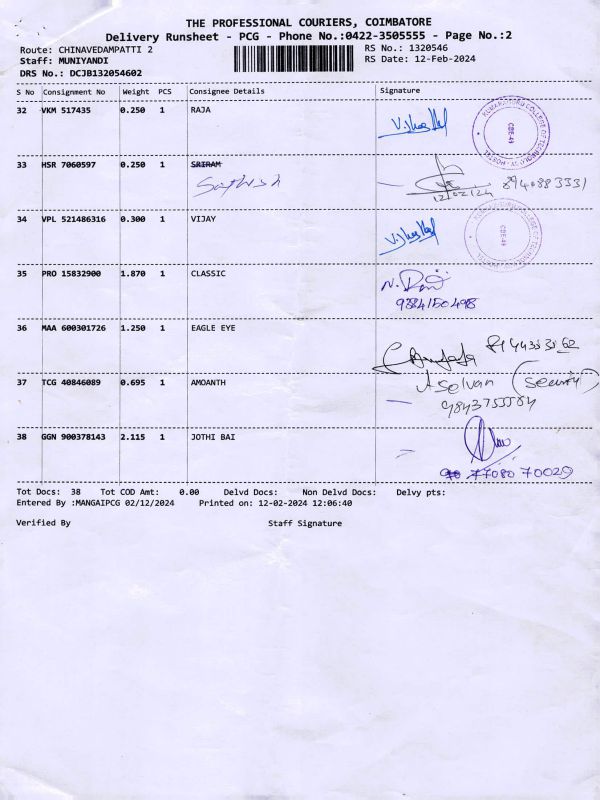 THE PROFESSIONAL COURIERS, COIMBATORE
Delivery Runsheet - PCG - Phone No.:0422-3505555 - Page No.:2
Route: CHINAVEDAMPATTI 2 RS No.: 1320546
Staff: MUNIYANDI RS Date: 12-Feb-2024
DRS No.: DCJB132054602
S No Consignment No Weight PCS Consignee Details Signature
32 VKM 517435 0.250 1 RAJA
KUMARAGURU COLLEGE OF TECHNOLOGY HOSTEL
CBE-49
33 HSR 7060597 0.250 1 SRIRAM
Sathish
12/02/24
34 VPL 521486316 0.300 1 VIJAY
CBE-49
35 PRO 15832900 1.870 1 CLASSIC
9384150498
36 MAA 600301726 1.250 1 EAGLE EYE
37 TCG 40846089 0.695 1 AMOANTH
A Selvan (Security)
38 GGN 900378143 2.115 1 JOTHI BAI
77080 70029
Tot Docs: 38 Tot COD Amt: 0.00 Delvd Docs: Non Delvd Docs: Delvy pts:
Entered By :MANGAIPCG 02/12/2024 Printed on: 12-02-2024 12:06:40
Verified By Staff Signature